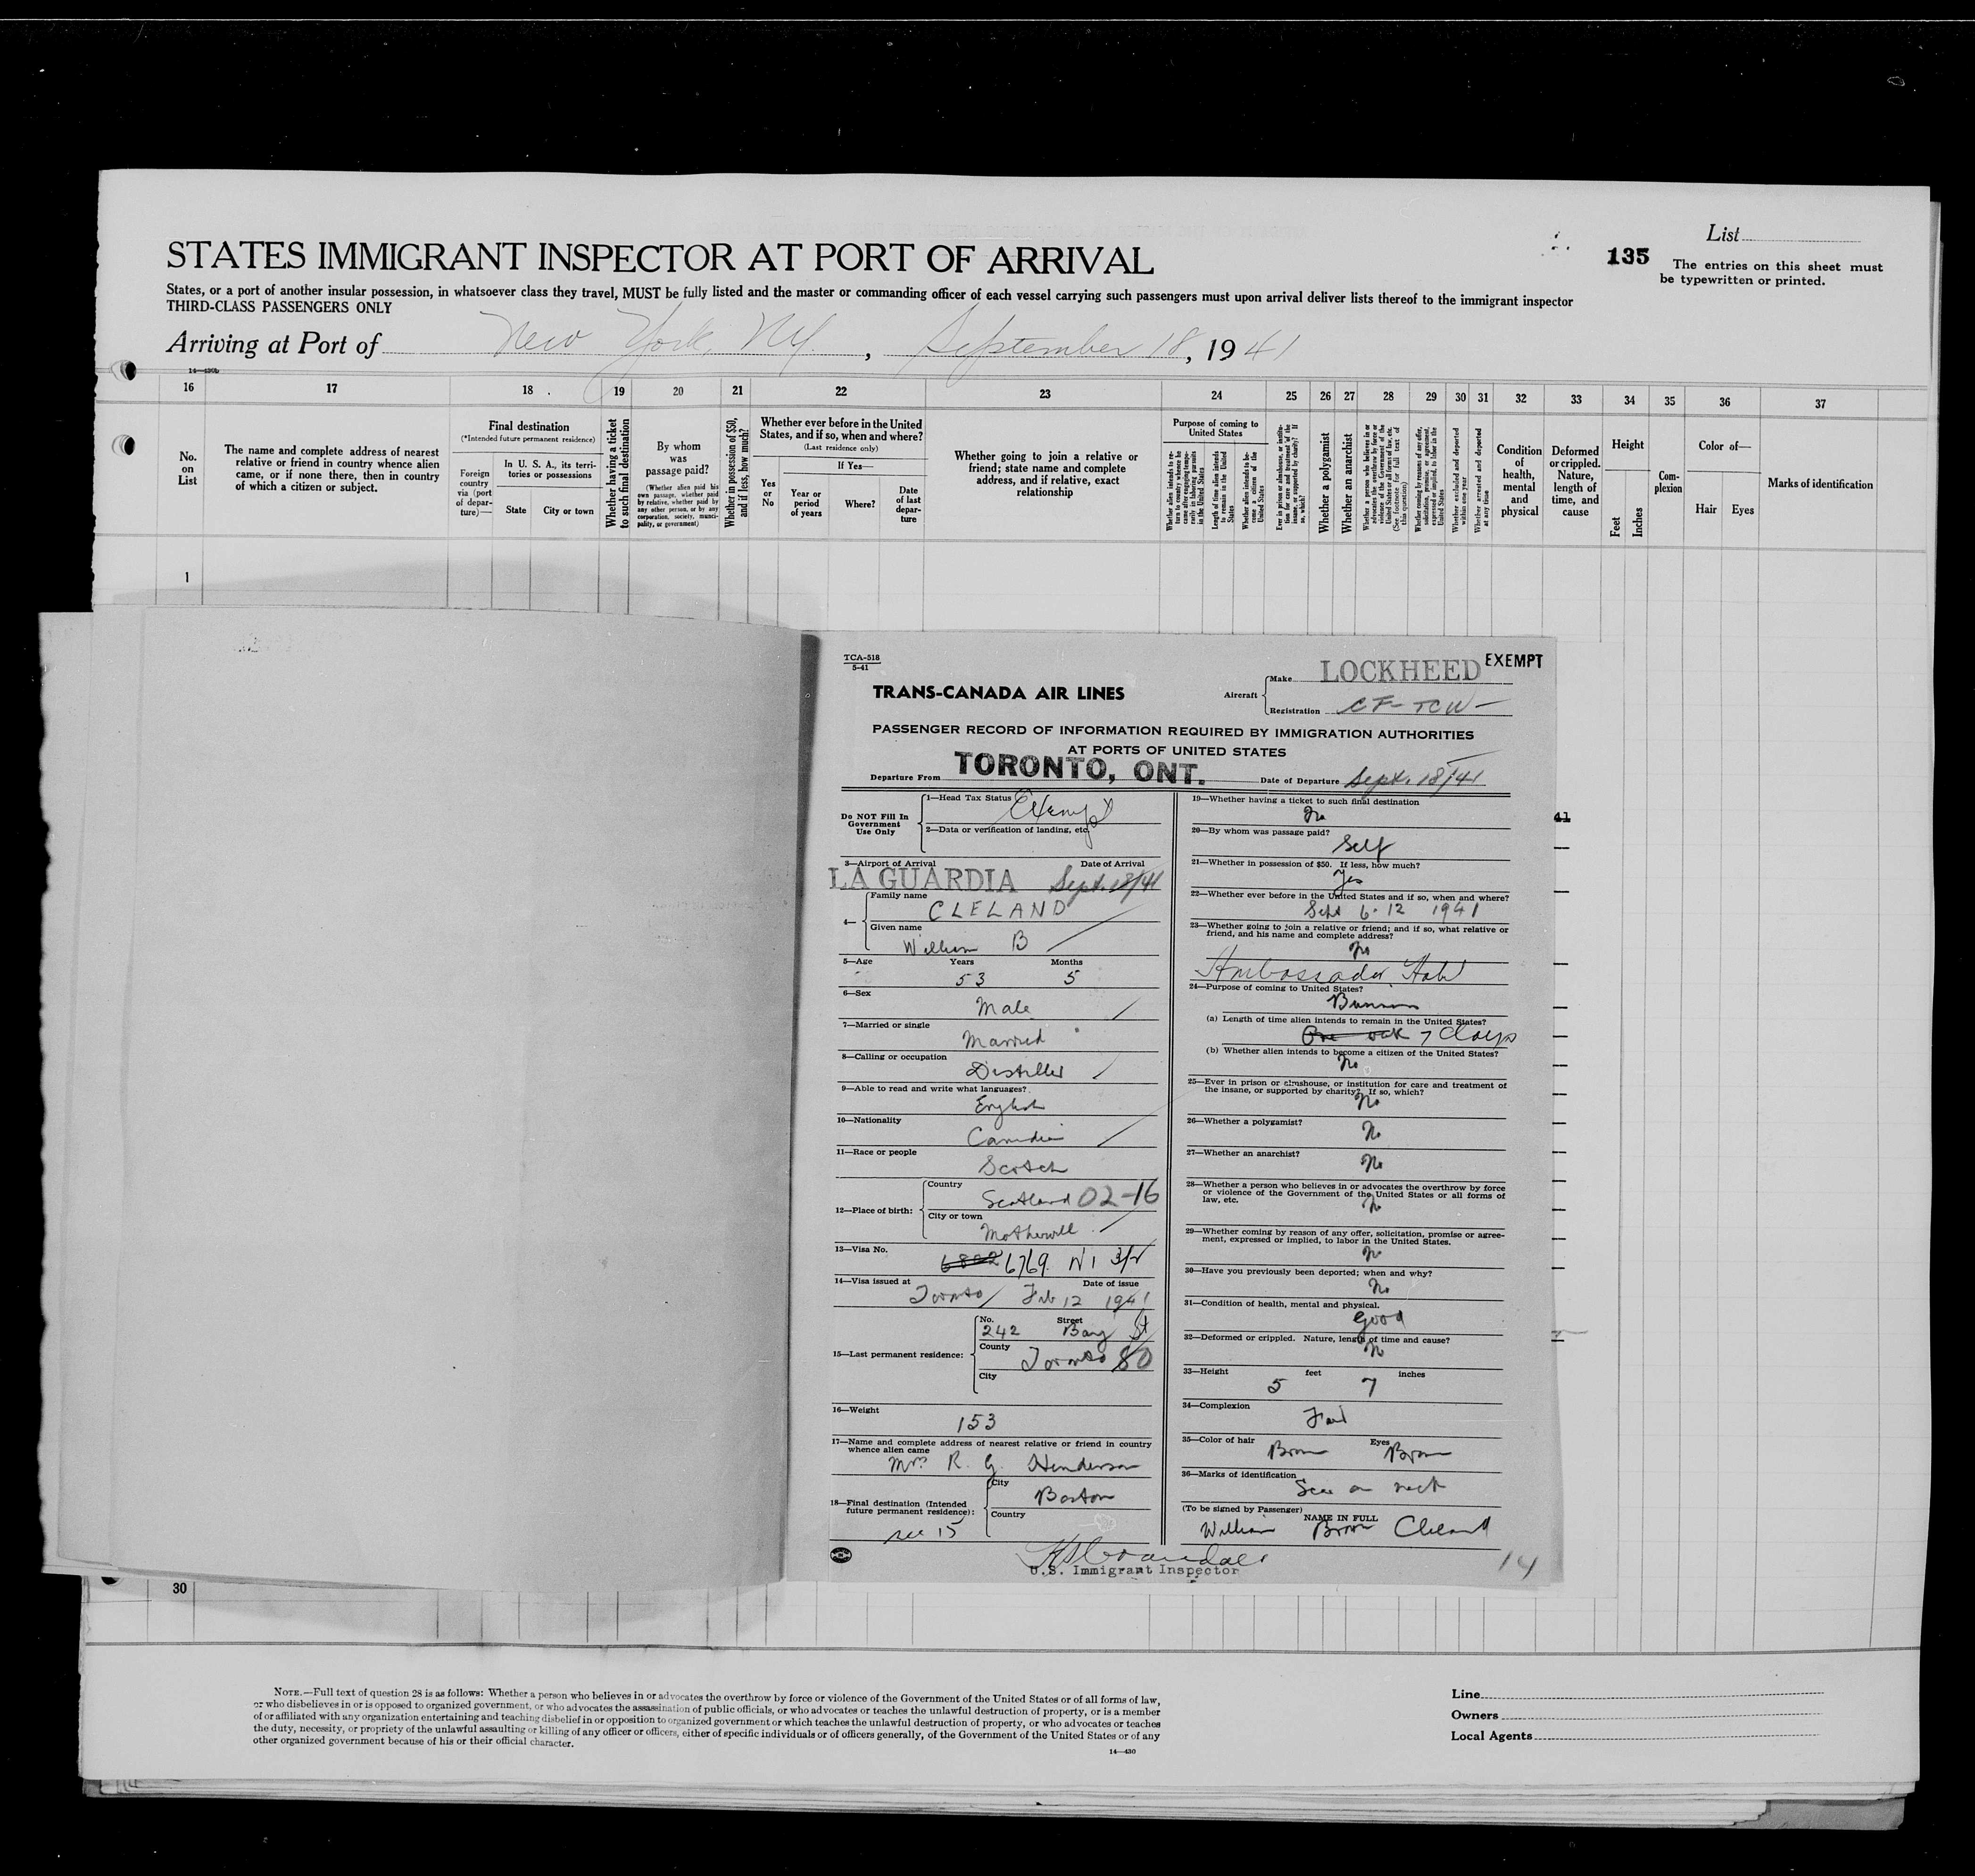 List
135
The entries on this sheet must
be typewritten or printed.
STATES IMMIGRANT INSPECTOR AT PORT OF ARRIVAL
States, or a port of another insular possession, in whatsoever class they travel, MUST be fully listed and the master or commanding officer of each vessel carrying such passengers must upon arrival deliver lists thereof to the immigrant inspector
THIRD-CLASS PASSENGERS ONLY
Arriving at Port of New York, NY. , September 18, 1941
14—430b
16 17 18 19 20 21 22 23 24 25 26 27 28 29 30 31 32 33 34 35 36 37
No.
on
List
The name and complete address of nearest
relative or friend in country whence alien
came, or if none there, then in country
of which a citizen or subject.
Final destination
(*Intended future permanent residence)
Foreign
country
via (port
of depar-
ture)—
In U. S. A., its terri-
tories or possessions
State
City or town
Whether having a ticket
to such final destination
By whom
was
passage paid?
(Whether alien paid his
own passage, whether paid
by relative, whether paid by
any other person, or by any
corporation, society, munici-
pality, or government)
Whether in possession of $50,
and if less, how much?
Whether ever before in the United
States, and if so, when and where?
(Last residence only)
Yes
or
No
If Yes—
Year or
period
of years
Where?
Date
of last
depar-
ture
Whether going to join a relative or
friend; state name and complete
address, and if relative, exact
relationship
Purpose of coming to
United States
Whether alien intends to re-
turn to country whence he
came after engaging tempo-
rarily in laboring pursuits
in the United States
Length of time alien intends
to remain in the United
States
Whether alien intends to be-
come a citizen of the
United States
Ever in prison or almshouse, or institu-
tion for care and treatment of the
insane, or supported by charity? If
so, which?
Whether a polygamist
Whether an anarchist
Whether a person who believes in or
advocates the overthrow by force or
violence of the Government of the
United States or all forms of law, etc.
(See footnote for full text of
this question)
Whether coming by reason of any offer,
solicitation, promise, or agreement,
expressed or implied, to labor in the
United States
Whether excluded and deported
within one year
Whether arrested and deported
at any time
Condition
of
health,
mental
and
physical
Deformed
or crippled.
Nature,
length of
time, and
cause
Height
Feet
Inches
Com-
plexion
Color of—
Hair
Eyes
Marks of identification
1
TCA-518
5-41
TRANS-CANADA AIR LINES
EXEMPT
Aircraft
Make LOCKHEED
Registration CF-TCW-
PASSENGER RECORD OF INFORMATION REQUIRED BY IMMIGRATION AUTHORITIES
AT PORTS OF UNITED STATES
Departure From TORONTO, ONT. Date of Departure Sept. 18/41
Do NOT Fill In
Government
Use Only
1—Head Tax Status Exempt
2—Data or verification of landing, etc.
3—Airport of Arrival Date of Arrival
LA GUARDIA Sept. 18/41
4— Family name
CLELAND
Given name
William B
5—Age Years Months
53 5
6—Sex
Male
7—Married or single
Married
8—Calling or occupation
Distiller
9—Able to read and write what languages?
English
10—Nationality
Canadian
11—Race or people
Scotch
12—Place of birth:
Country
Scotland 02-16
City or town
Motherwell
13—Visa No.
6802 6769. N1 3/2
14—Visa issued at Date of issue
Toronto Feb 12 1941
15—Last permanent residence:
No. Street
242 Bay St
County
Toronto 80
City
16—Weight
153
17—Name and complete address of nearest relative or friend in country
whence alien came
Mrs. R. G. Henderson
18—Final destination (Intended
future permanent residence):
City
Boston
Country
see 15
U.S. Immigrant Inspector
19—Whether having a ticket to such final destination
No
20—By whom was passage paid?
Self
21—Whether in possession of $50. If less, how much?
Yes
22—Whether ever before in the United States and if so, when and where?
Sept 6-12 1941
23—Whether going to join a relative or friend; and if so, what relative or
friend, and his name and complete address?
No
Ambassador Hotel
24—Purpose of coming to United States?
Business
(a) Length of time alien intends to remain in the United States?
One week 7 days
(b) Whether alien intends to become a citizen of the United States?
No
25—Ever in prison or almshouse, or institution for care and treatment of
the insane, or supported by charity? If so, which?
No
26—Whether a polygamist?
No
27—Whether an anarchist?
No
28—Whether a person who believes in or advocates the overthrow by force
or violence of the Government of the United States or all forms of
law, etc.
No
29—Whether coming by reason of any offer, solicitation, promise or agree-
ment, expressed or implied, to labor in the United States.
No
30—Have you previously been deported; when and why?
No
31—Condition of health, mental and physical.
Good
32—Deformed or crippled. Nature, length of time and cause?
No
33—Height feet inches
5 7
34—Complexion
Fair
35—Color of hair Eyes
Brown Brown
36—Marks of identification
Scar on neck
(To be signed by Passenger)
NAME IN FULL
William Brown Cleland
14
41
30
NOTE.—Full text of question 28 is as follows: Whether a person who believes in or advocates the overthrow by force or violence of the Government of the United States or of all forms of law,
or who disbelieves in or is opposed to organized government, or who advocates the assassination of public officials, or who advocates or teaches the unlawful destruction of property, or is a member
of or affiliated with any organization entertaining and teaching disbelief in or opposition to organized government or which teaches the unlawful destruction of property, or who advocates or teaches
the duty, necessity, or propriety of the unlawful assaulting or killing of any officer or officers, either of specific individuals or of officers generally, of the Government of the United States or of any
other organized government because of his or their official character.
14—430
Line
Owners
Local Agents